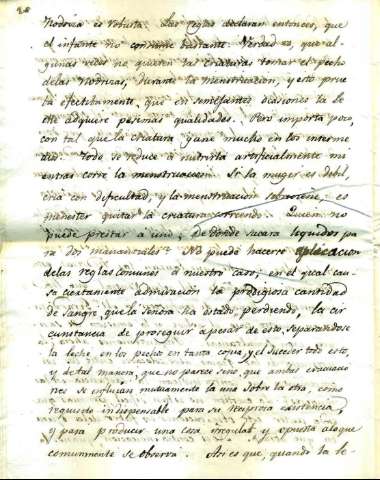 nodriza es robusta. Las reglas declaran entonces, que
el infante no consume bastante. Verdad es, que al-
gunas veces no quieren las criaturas tomar el pecho
de las nodrizas, durante la menstruacion, y esto prue
ba efectivamente, que en semejantes ocasiones la le
che adquiere pesimas qualidades. Pero importa poco,
con tal que la criatura gane mucho en los interme
dios. Todo se reduce a nutrirla artificialmente mi
entras corre la menstruacion. Si la muger es debil,
cria con dificultad, y la menstruacion sobreviene, es
menester quitar la criatura corriendo. Quien no
puede prestar a uno, de donde sacara liquidos pa
ra dos manantiales? No puede hacerse aplicacion
de las reglas comunes a nuestro caso, en el qual cau-
sa ciertamente admiracion la prodigiosa cantidad
de sangre, que la Señora ha estado perdiendo, la cir
cunstancia de proseguir apesar de esto, separandose
la leche en los pechos en tanta copia, y el suceder todo esto,
y de tal manera, que no parece sino, que ambas evacuacio
nes se influian mutuamente la una sobre la otra, como
requisito indispensable para su reciproca existencia,
y para producir una cosa irregular y opuesta a lo que
comunmente se observa. Asi es que, quando la le-